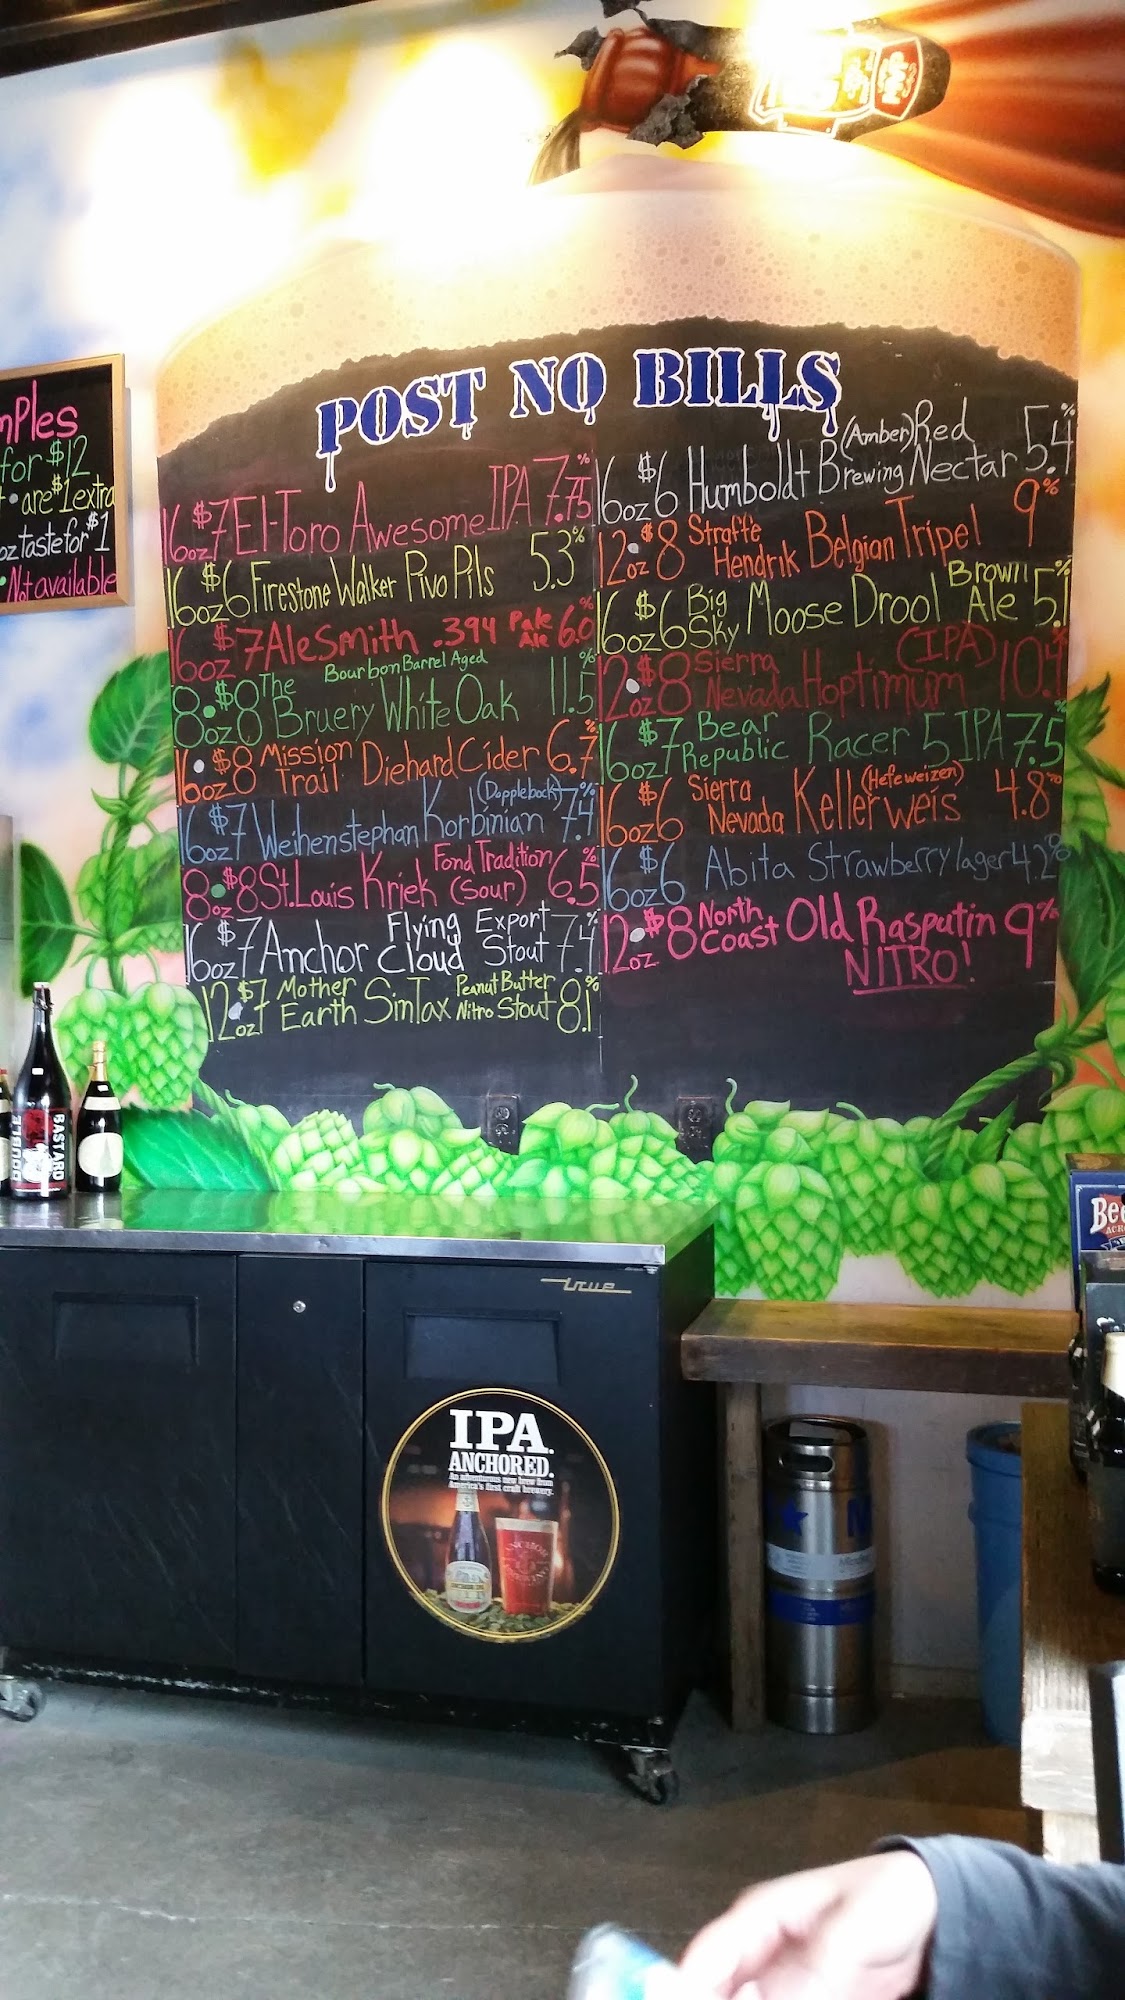 mPles
for $12
are $1 extra
oz taste for $1
Not available
POST NO BILLS
16oz $7 El-Toro Awesome IPA 7.75%
16oz $6 Firestone Walker Pivo Pils 5.3%
16oz $7 AleSmith .394 Pale Ale 6.0%
8oz $8 The Bruery White Oak Bourbon Barrel Aged 11.5%
16oz $8 Mission Trail Diehard Cider 6.7%
16oz $7 Weihenstephan Korbinian (Dopplebock) 7.4%
8oz $8 St. Louis Kriek Fond Tradition (Sour) 6.5%
16oz $7 Anchor Flying Cloud Export Stout 7.4%
12oz $7 Mother Earth SinTax Peanut Butter Nitro Stout 8.1%
16oz $6 Humboldt Brewing (Amber) Red Nectar 5.4%
12oz $8 Straffe Hendrik Belgian Tripel 9%
16oz $6 Big Sky Moose Drool Brown Ale 5.1%
12oz $8 Sierra Nevada Hoptimum (IPA) 10.4%
16oz $7 Bear Republic Racer 5 IPA 7.5%
16oz $6 Sierra Nevada Kellerweis (Hefeweizen) 4.8%
16oz $6 Abita Strawberry lager 4.2%
12oz $8 North Coast Old Rasputin 9%
NITRO!
DOUBLE
BASTARD
true
IPA.
ANCHORED.
An adventurous new brew from
America's first craft brewery.
Bee